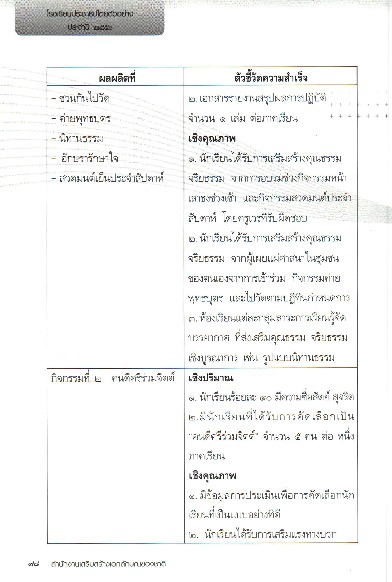 โรงเรียนประชาธิปไตยตัวอย่าง
ผลผลิตที่
ตัวชี้วัดความสำเร็จ
- ชวนกันไปวัด
- ค่ายพุทธบุตร
- นิทานธรรม
- อักขรารักษาใจ
- สวดมนต์เย็นประจำสัปดาห์
๒. เอกสารรายงานสรุปผลการปฏิบัติ
จำนวน ๑ เล่ม ต่อภาคเรียน
เชิงคุณภาพ
๑. นักเรียนได้รับการเสริมสร้างคุณธรรม
จริยธรรม จากการอบรมช่วงกิจกรรมหน้า
เสาธงช่วงเช้า และกิจกรรมสวดมนต์ประจำ
สัปดาห์ โดยครูเวรที่รับผิดชอบ
๒. นักเรียนได้รับการเสริมสร้างคุณธรรม
จริยธรรม จากผู้เผยแผ่ศาสนาในชุมชน
ของตนเองจากการเข้าร่วม กิจกรรมค่าย
พุทธบุตร และไปวัดตามปฏิทินกำหนดการ
๓. ห้องเรียนแต่ละกลุ่มสาระการเรียนรู้จัด
บรรยากาศ ที่ส่งเสริมคุณธรรม จริยธรรม
เชิงบูรณาการ เช่น รูปแบบนิทานธรรม
กิจกรรมที่ ๒ คนดีศรีร่วมจิตต์
เชิงปริมาณ
๑. นักเรียนร้อยละ ๘๐ มีความซื่อสัตย์ สุจริต
๒. มีนักเรียนที่ได้รับการคัดเลือกเป็น
"คนดีศรีร่วมจิตต์" จำนวน ๕ คน ต่อ หนึ่ง
ภาคเรียน
เชิงคุณภาพ
๑. มีข้อมูลการประเมินเพื่อการคัดเลือกนัก
เรียนที่เป็นแบบอย่างที่ดี
๒. นักเรียนได้รับการเสริมแรงทางบวก
๗๘ สำนักงานเสริมสร้างเอกลักษณ์ของชาติ